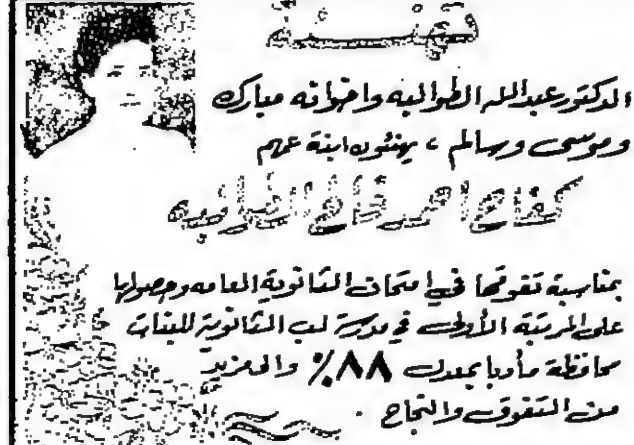 تهنئة
الدكتور عبدالله الطوالبه واخوانه مبارك
وموسى وسالم ، يهنئون ابنة عمهم
كفاح احمد الطوالبه
بمناسبة تفوقها في امتحان الثانوية العامه وحصولها
على المرتبة الأولى في مدرسة لب الثانوية للبنات
محافظة مأدبا بمعدل ٨٨٪ والى مزيد
من التفوق والنجاح .